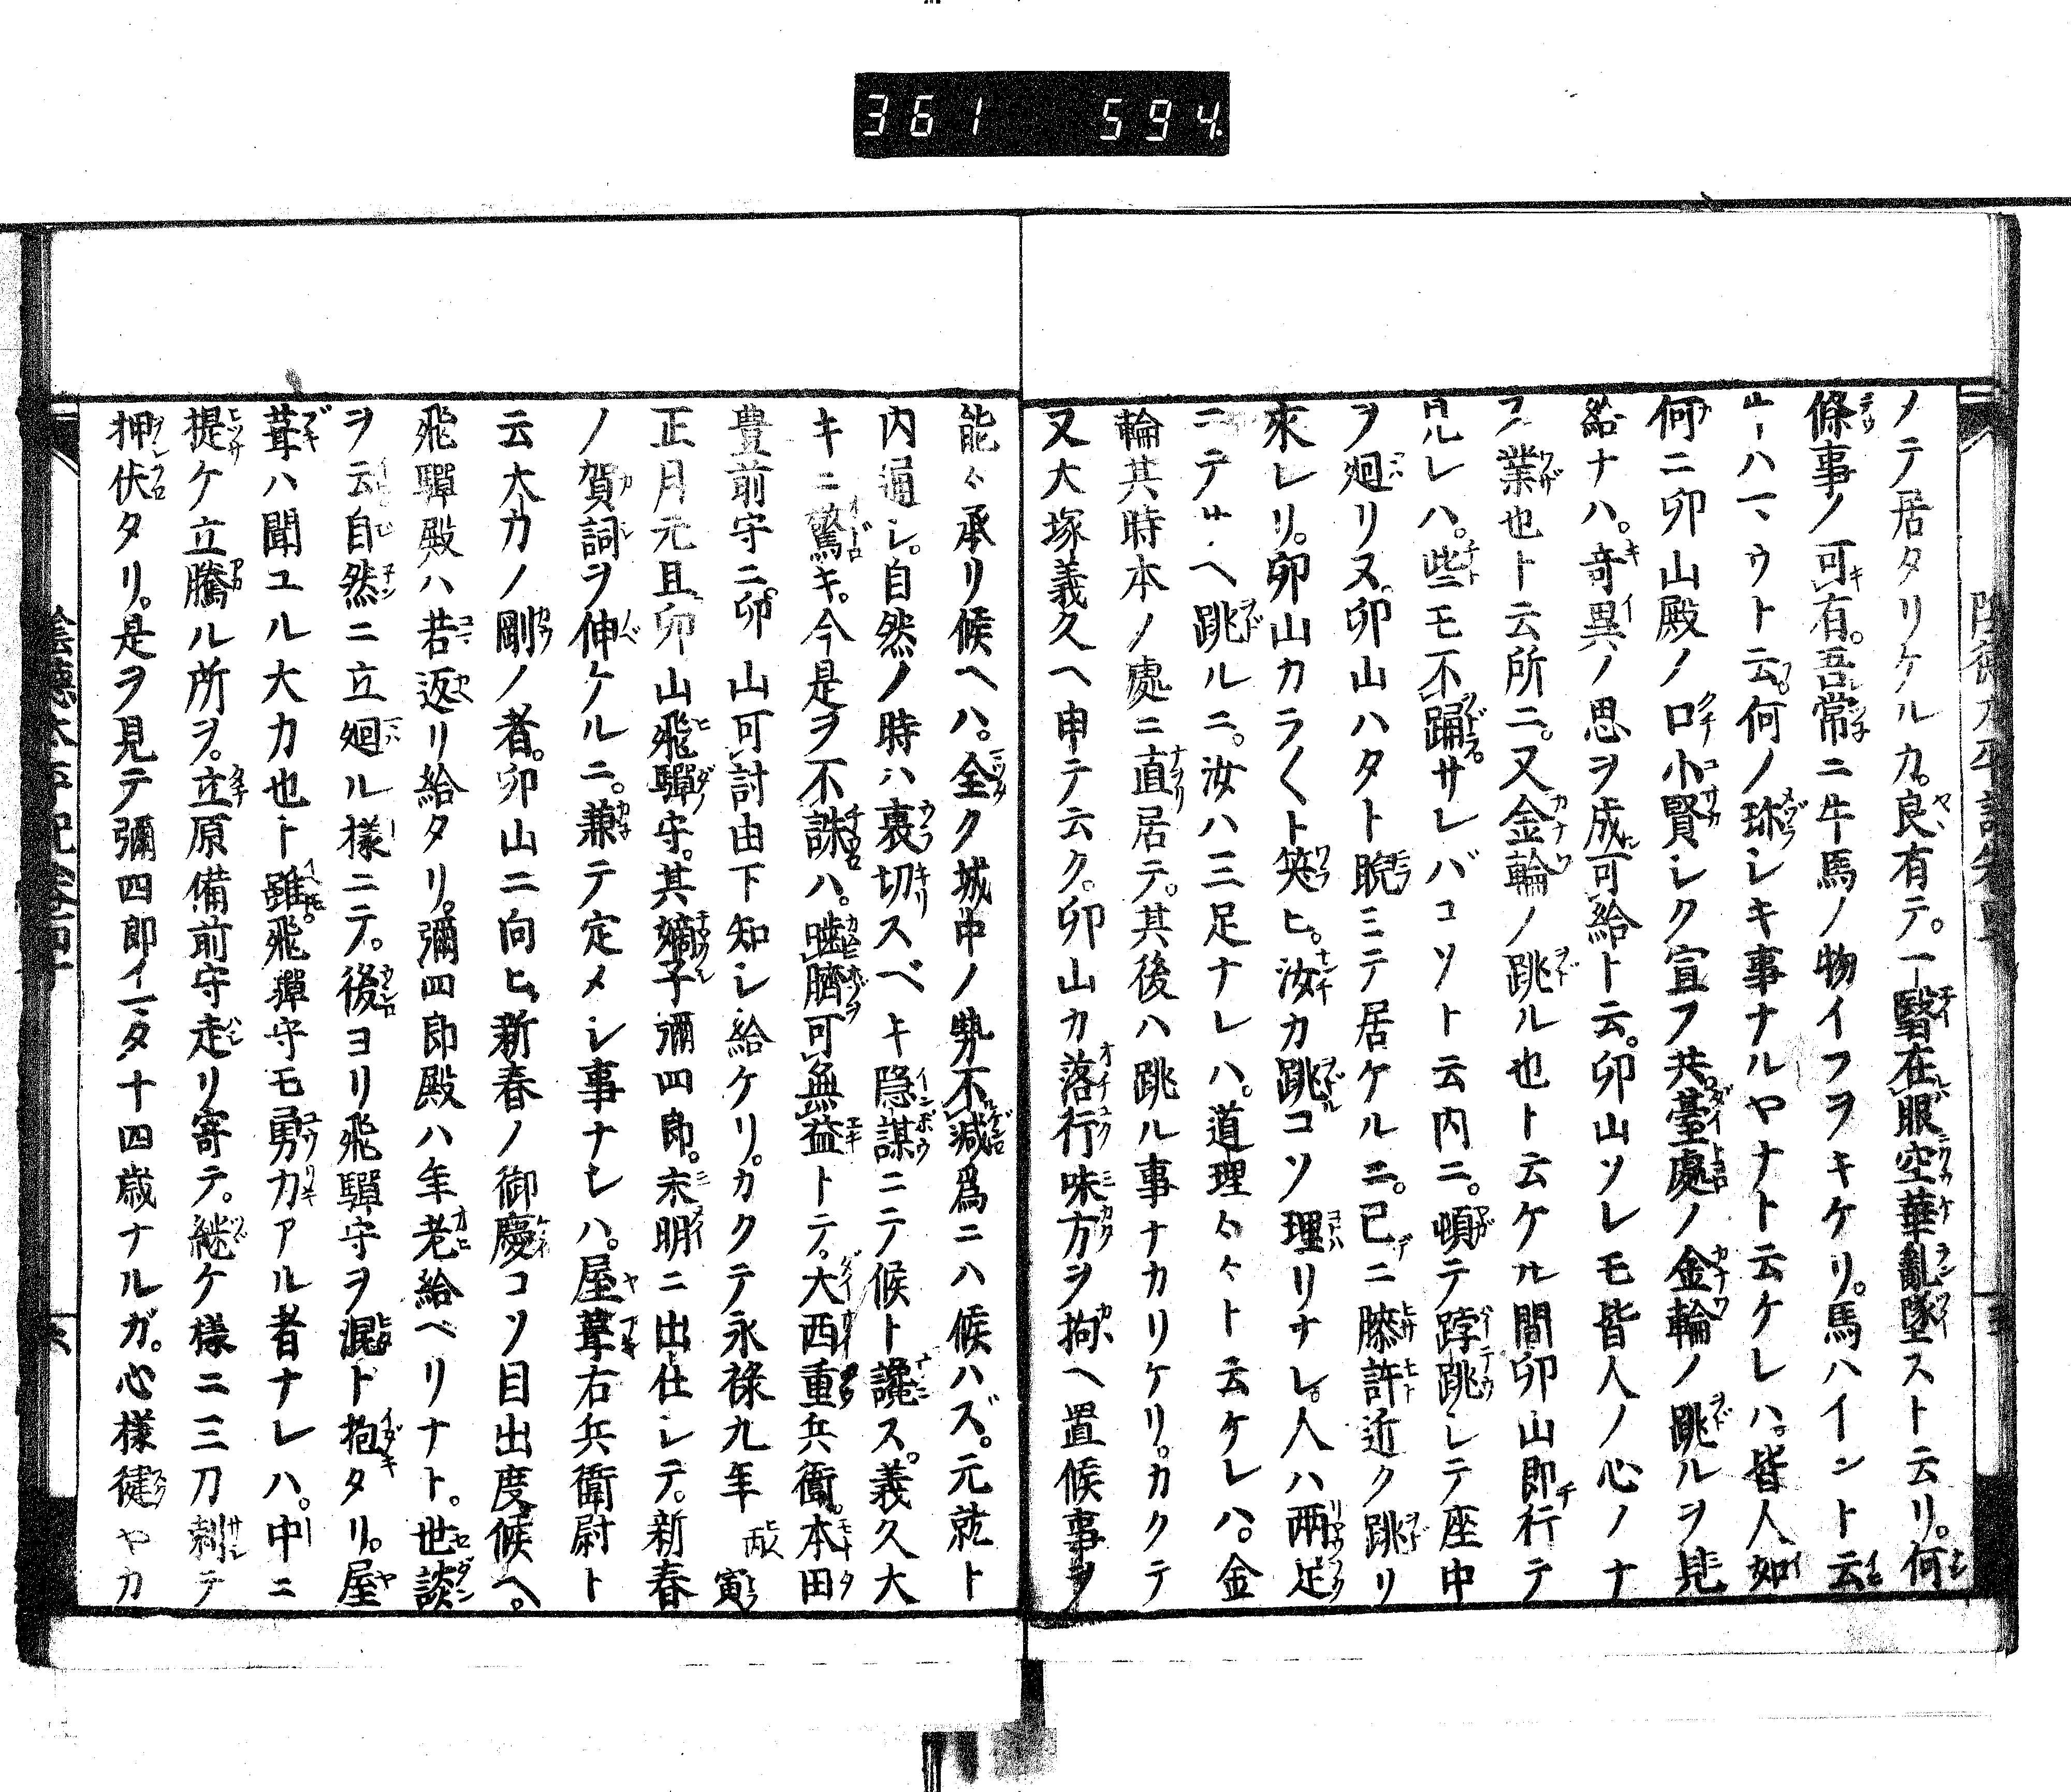 361 594
ノテ居タリケルカ。良有テ。一翳在眼空華亂墜スト云リ。何
條事ノ可有。吾常ニ牛馬ノ物イフヲキケリ。馬ハイント云
ハ ウト云。何ノ珎シキ事ナルヤナト云ケレハ。皆人如
何ニ卯山殿ノ口小賢シク宣フ共。臺處ノ金輪ノ跳ルヲ見
給ナハ。奇異ノ思ヲ成可給ト云。卯山ソレモ皆人ノ心ノナ
ス業也ト云所ニ。又金輪ノ跳ル也ト云ケル間卯山即行テ
見ルレハ。些モ不踊サレバコソト云内ニ。頓テ踍跳シテ座中
ヲ廻リヌ。卯山ハタト睨ミテ居ケルニ。已ニ膝許近ク跳リ
來レリ。卯山カラ〱ト笑ヒ。汝カ跳コソ理リナレ。人ハ兩足
ニテサヘ跳ルニ。汝ハ三足ナレハ。道理々々ト云ケレハ。金
輪其時本ノ處ニ直居テ。其後ハ跳ル事ナカリケリ。カクテ
又大塚義久ヘ申テ云ク。卯山カ落行味方ヲ拘ヘ置候事ヲ
能々承リ候ヘハ。全ク城中ノ勢不減爲ニハ候ハズ。元就ト
内通シ。自然ノ時ハ裏切スベキ隠謀ニテ候ト讒ス。義久大
キニ驚キ。今是ヲ不誅ハ。噬臍可無益トテ。大西重兵衞。本田
豊前守ニ。卯山可討由下知シ給ケリ。カクテ永禄九年丙寅
正月元旦卯山飛驒守。其嫡子彌四郎。未明ニ出仕シテ。新春
ノ賀詞ヲ伸ケルニ。兼テ定メシ事ナレハ。屋葺右兵衛尉ト
云大力ノ剛ノ者。卯山ニ向ヒ。新春ノ御慶コソ目出度候ヘ。
飛驒殿ハ若返リ給タリ。彌四郎殿ハ年老給ベリナト。世談
ヲ云自然ニ立廻ル樣ニテ。後ヨリ飛驒守ヲ混ト抱タリ。屋
葺ハ聞ユル大力也ト雖。飛彈守モ勇力アル者ナレハ。中ニ
提ケ立騰ル所ヲ。立原備前守走リ寄テ。継ケ樣ニ三刀刺テ
押伏タリ。是ヲ見テ彌四郎イマタ十四歳ナルガ。心樣健ヤカ
陰德太平記卷四十